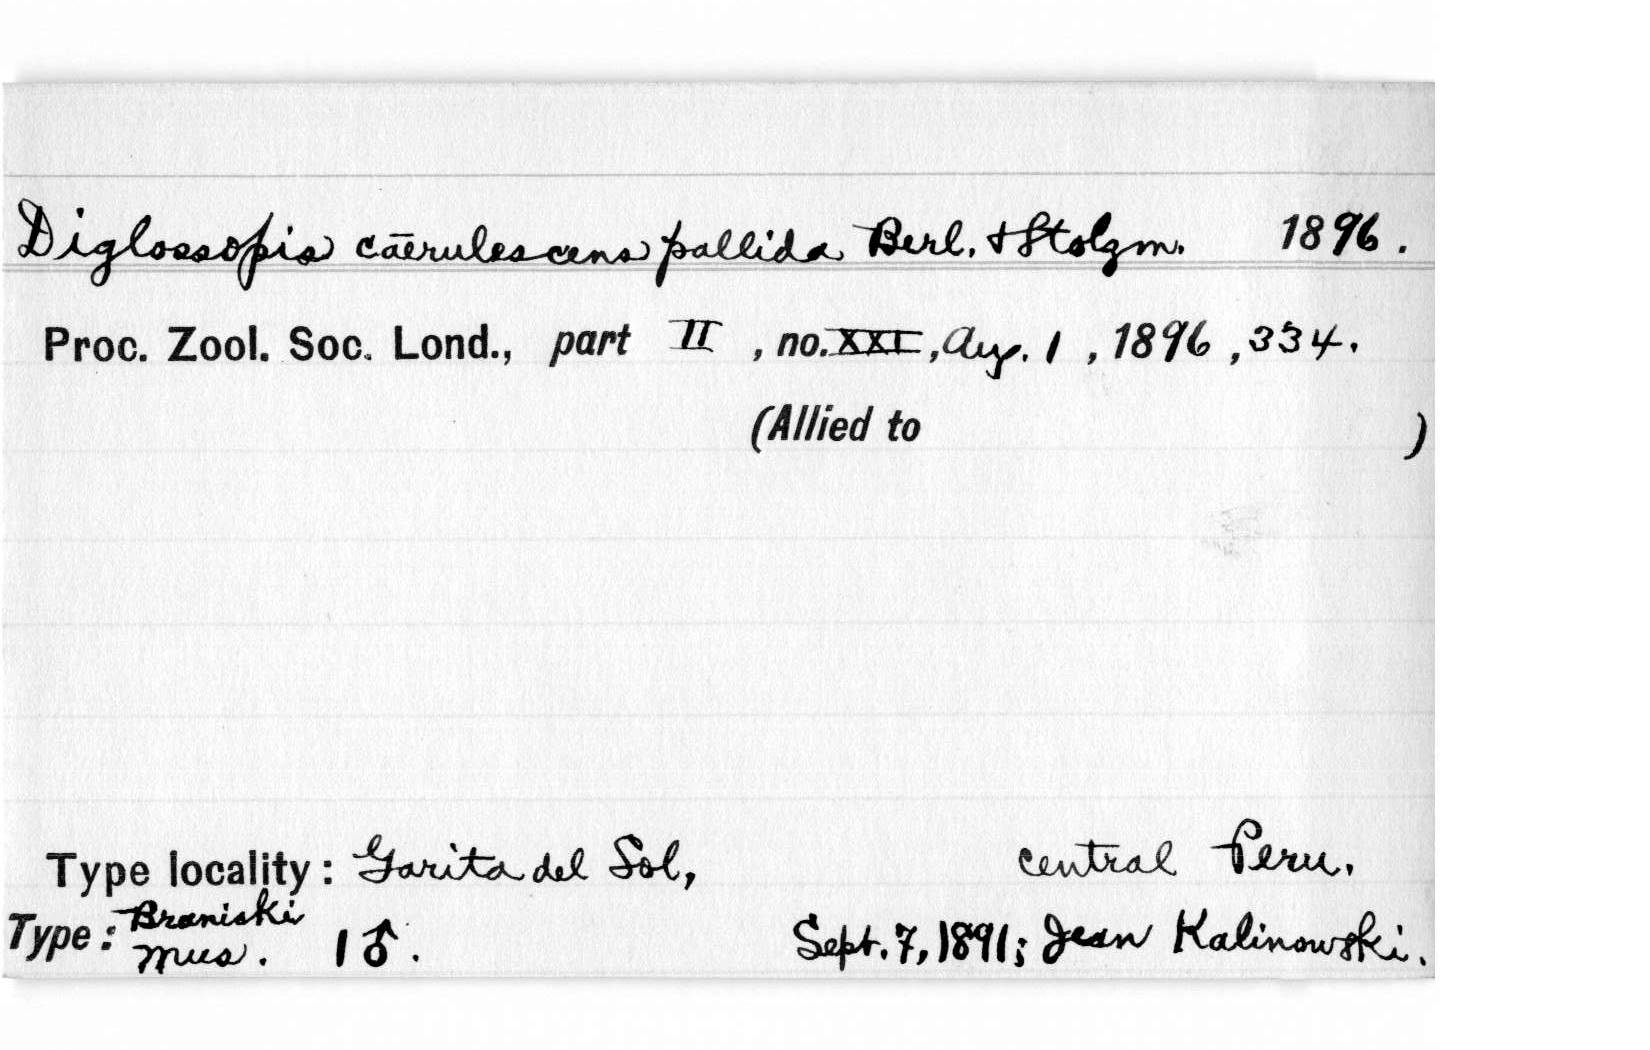 Diglossopis caerulescens pallida Berl. & Stolzm. 1896.
Proc. Zool. Soc. Lond., part II, no. XXI, Aug. 1, 1896, 334.
(Allied to )
Type locality: Garita del Sol, central Peru.
Type: Braniski Mus. 1 ♂. Sept. 7, 1891; Jean Kalinowski.